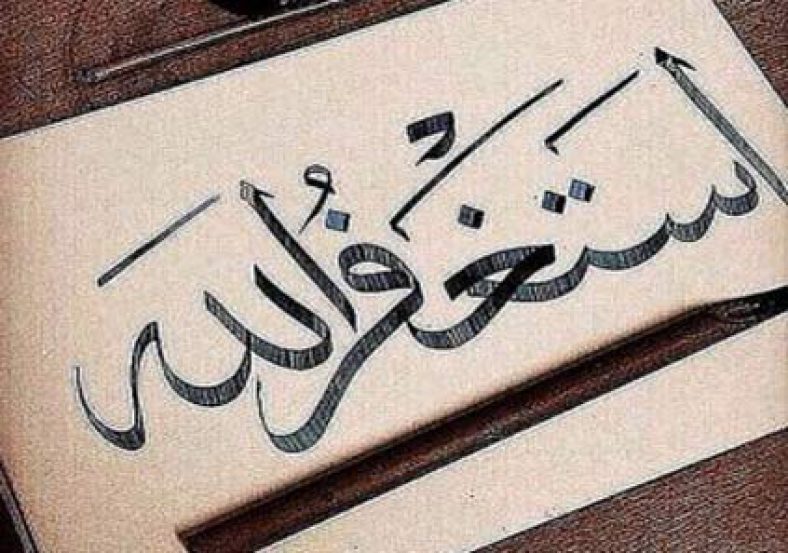 أستغفرُ اللهَ